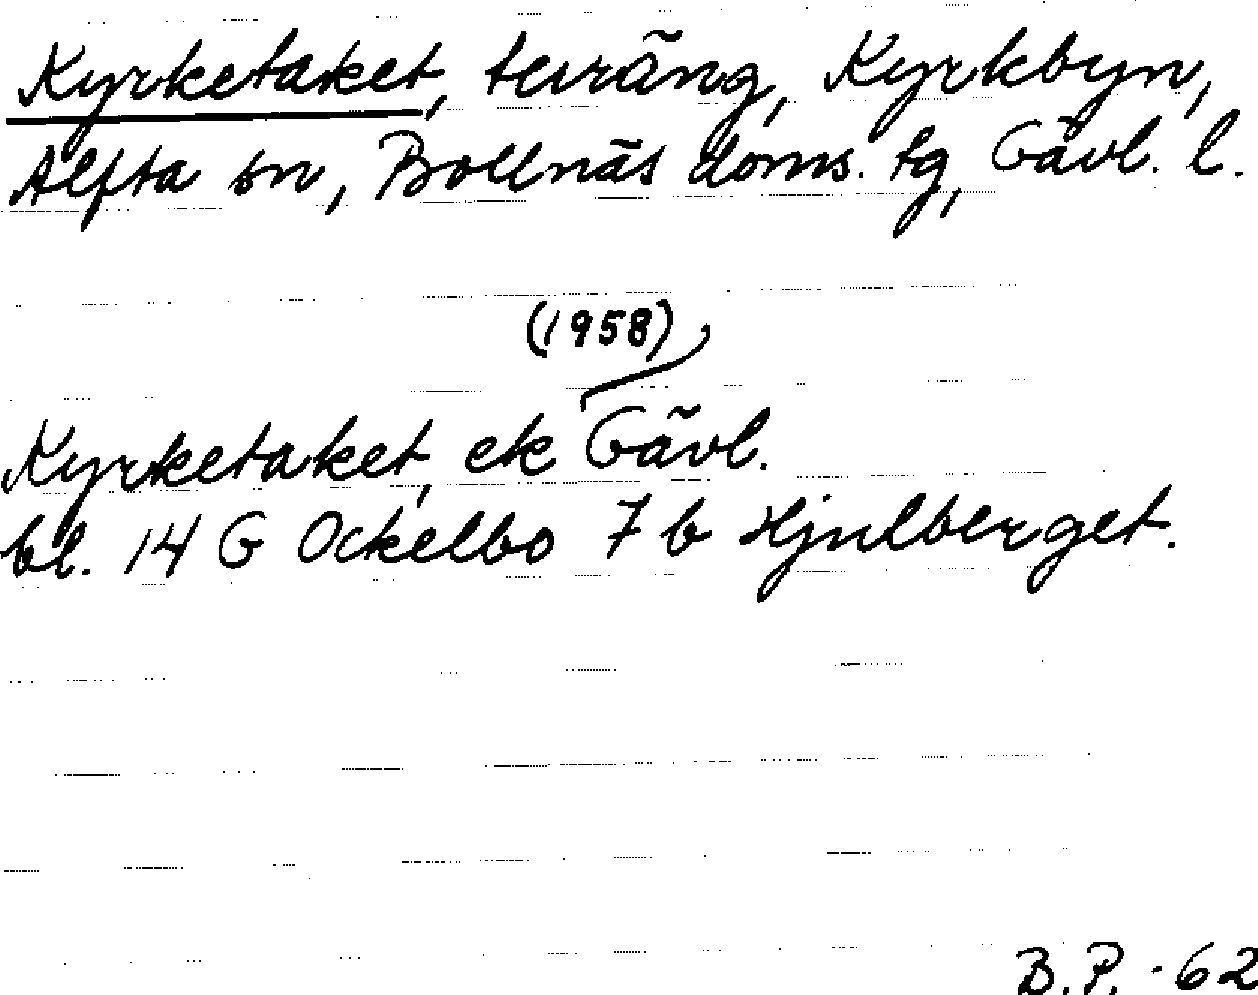 Kyrketaket, terräng, Kyrkbyn,
Alfta sn, Bollnäs doms. tg, Gävl. l.
(1958)
Kyrketaket, ek Gävl.
bl. 14 G Ockelbo 7 b Hjulberget.
B.P. -62